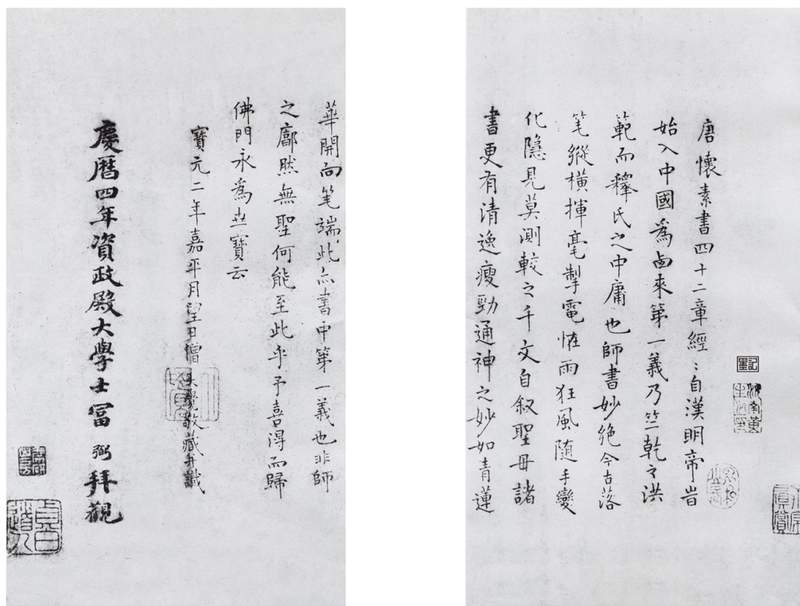 唐懷素書四十二章經〻自漢明帝時
始入中國為西來第一義乃竺乾之洪
範而釋氏之中庸也師書妙絕今古落
笔縱橫揮毫掣電恠雨狂風随手變
化隐見莫測較之千文自叙聖母諸
書更有清逸瘦勁通神之妙如青蓮
華開向笔端此亦書中第一義也非師
之廓然無聖何能至此乎予喜得而歸
佛門永為世寶云
寶元二年嘉平月望日僧 敬藏并識
慶曆四年資政殿大學士冨弼拜觀